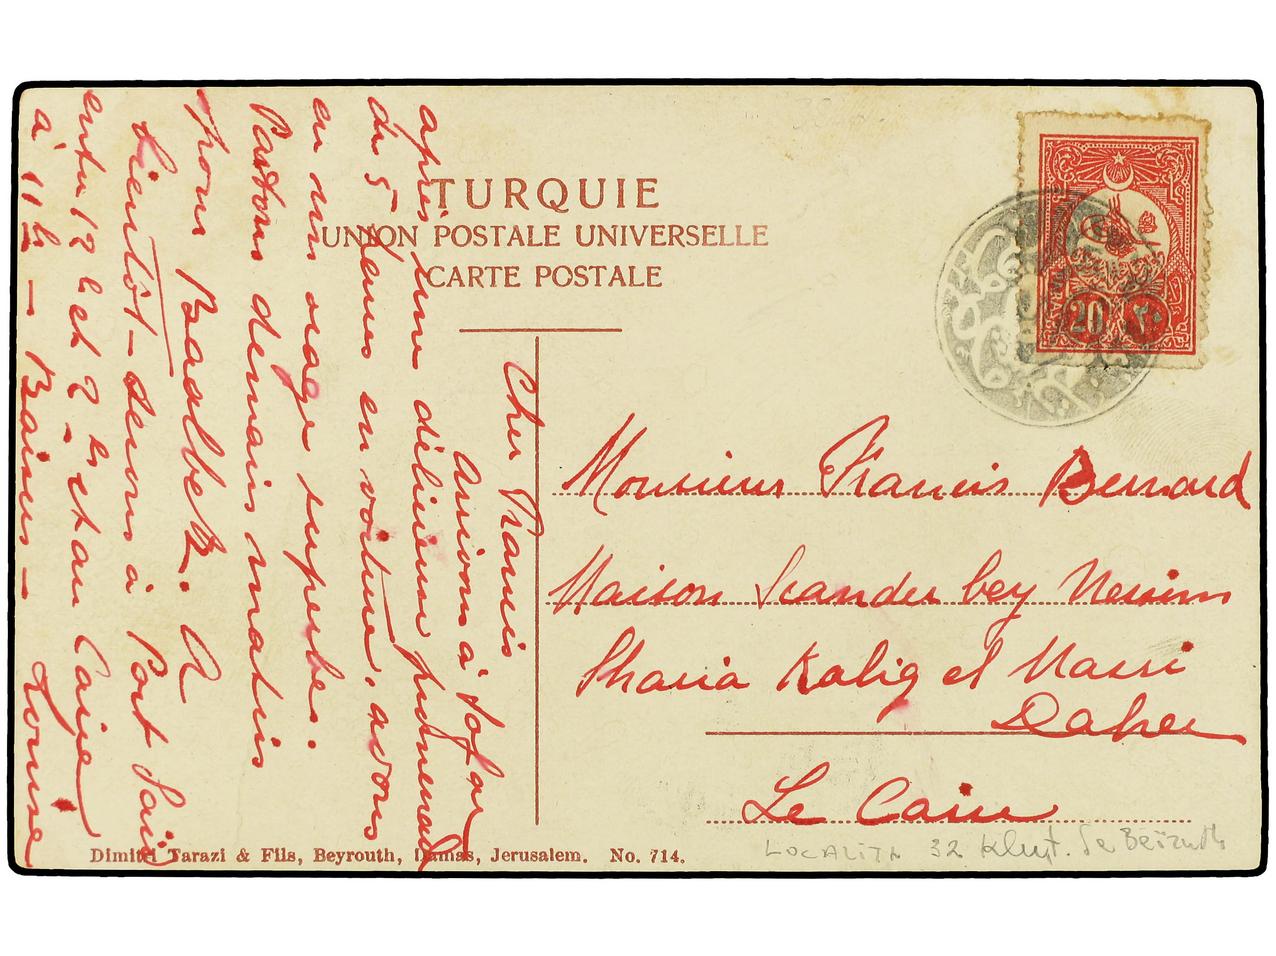 TURQUIE
UNION POSTALE UNIVERSELLE
CARTE POSTALE
20
٢٠
Cher Francis
Arrivons à Sofar
après une délicieuse promenade
de 5 heures en voiture, avons
eu un orage superbe.
Partons demain matin
pour Baalbek. A
bientôt – serons à Port Saïd
entre 12 et 2 et au Caire
à 11h – Baisers – Louise
Monsieur Francis Bernard
Maison Scander bey Nessim
Sharia Kalig el Masri
Daher
Le Caire
Dimitri Tarazi & Fils, Beyrouth, Damas, Jerusalem. No. 714.
LOCALITA 32